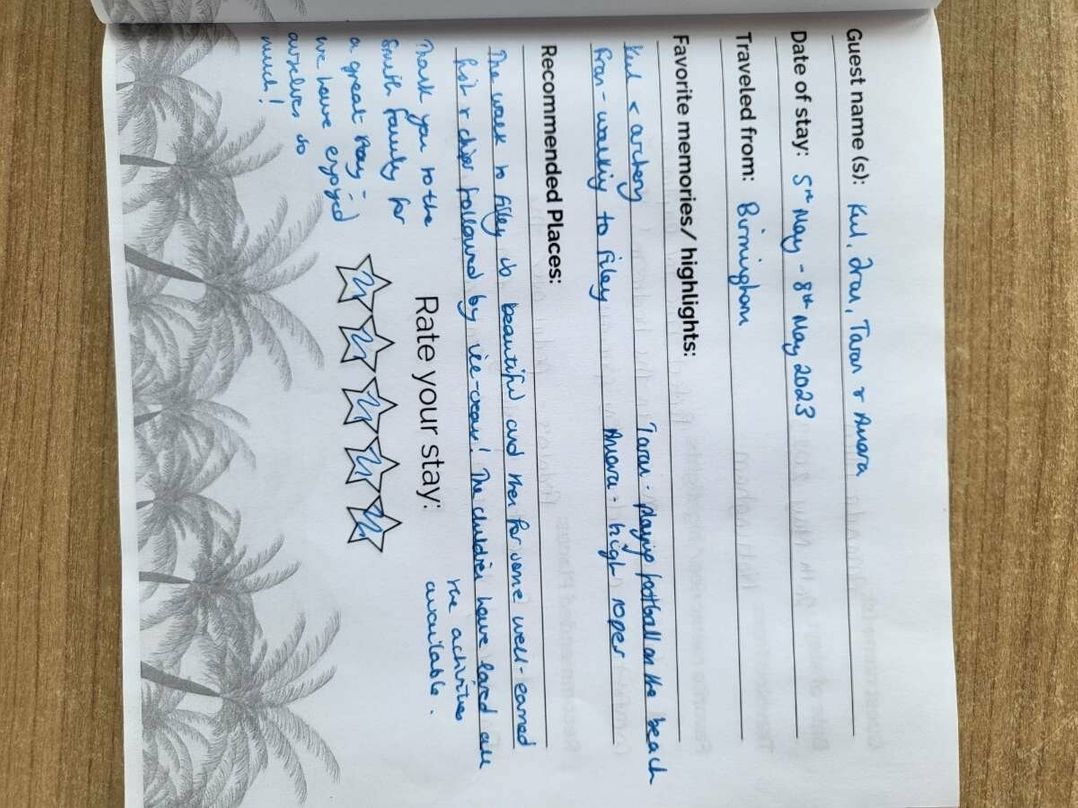 Guest name (s): Kul, Fran, Taran & Amara
Date of stay: 5th May - 8th May 2023
Traveled from: Birmingham
Favorite memories/ highlights:
Kul - archery Taran - playing football on the beach
Fran - walking to Filey Amara - high ropes
Recommended Places:
The walk to Filey is beautiful and then for some well-earned
fish & chips followed by ice-cream! The children have loved all
the activities
available.
Thank you to the
Smith family for
a great stay -
we have enjoyed
ourselves so
much!
Rate your stay: